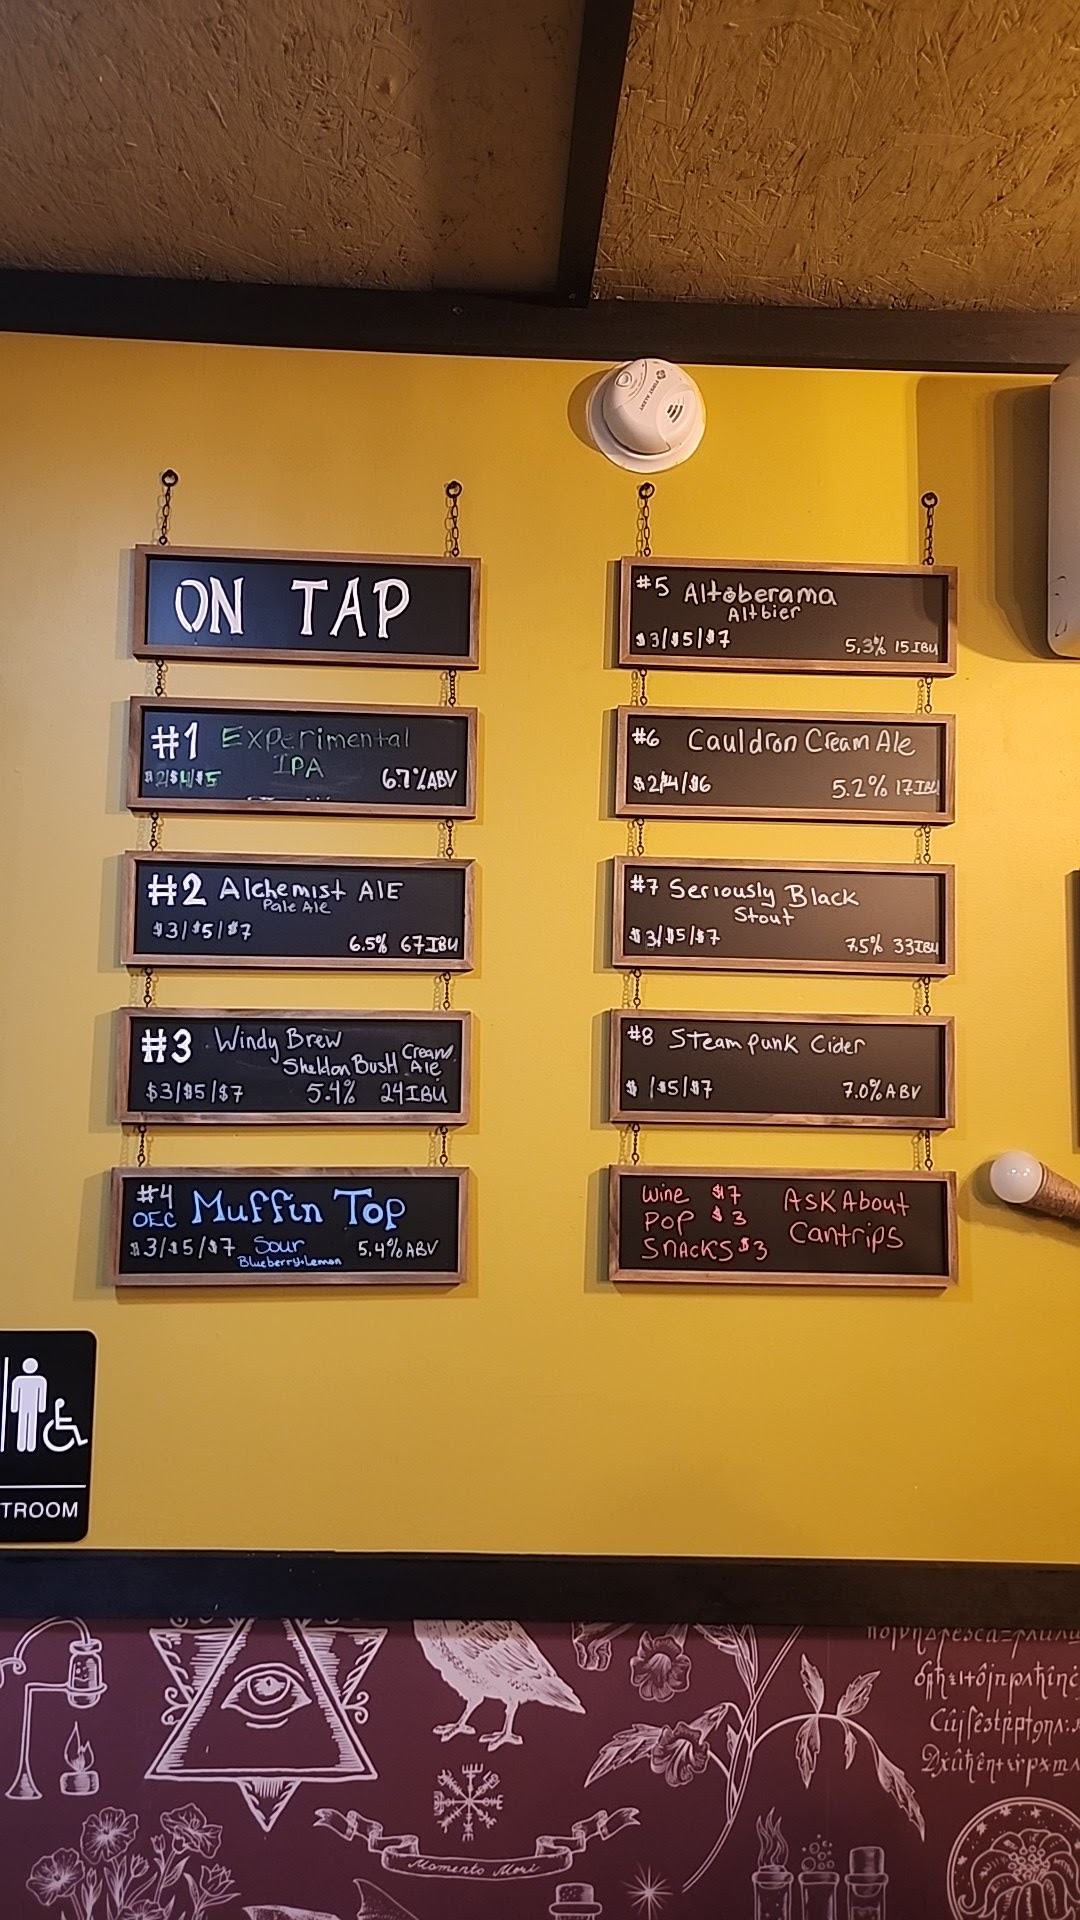 FIRST ALERT
ON TAP
#1 Experimental
IPA
$2/$4/$5 6.7%ABV
#2 Alchemist ALE
Pale Ale
$3/$5/$7
6.5% 67IBU
#3 Windy Brew
Sheldon Bush Cream Ale
$3/$5/$7 5.4% 24IBU
#4 Muffin Top
OEC
$3/$5/$7 Sour 5.4%ABV
Blueberry+Lemon
#5 Altoberama
Altbier
$3/$5/$7 5.3% 15IBU
#6 Cauldron Cream Ale
$2/$4/$6 5.2% 17IBU
#7 Seriously Black
Stout
$3/$5/$7 7.5% 33IBU
#8 Steampunk Cider
$ /$5/$7 7.0%ABV
Wine $7 ASK About
POP $3 Cantrips
SNACKS $3
TROOM
Momento Mori